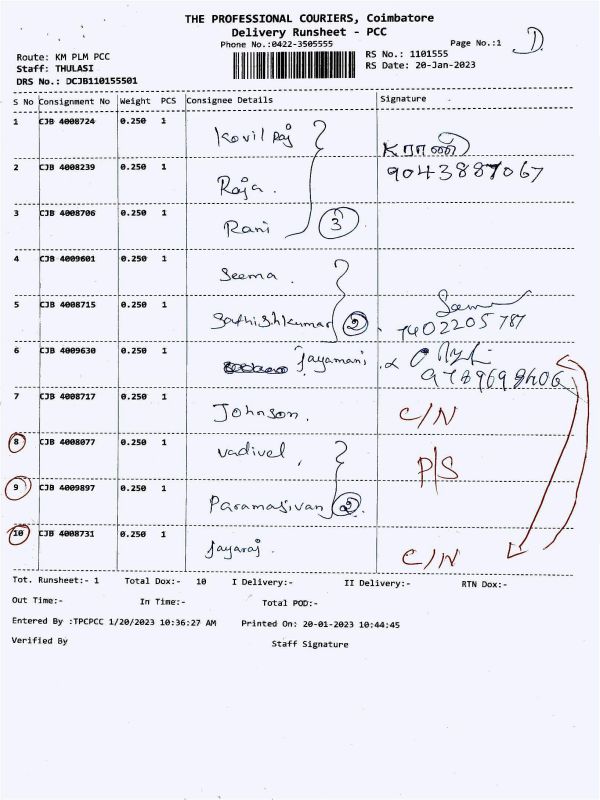 THE PROFESSIONAL COURIERS, Coimbatore
Delivery Runsheet - PCC
Phone No.:0422-3505555
Page No.:1
D
Route: KM PLM PCC
RS No.: 1101555
Staff: THULASI
RS Date: 20-Jan-2023
DRS No.: DCJB110155501
S No Consignment No Weight PCS Consignee Details Signature
1 CJB 4008724 0.250 1 Kovil Raj
2 CJB 4008239 0.250 1 Raja. 9043887067
3 CJB 4008706 0.250 1 Rani 3
4 CJB 4009601 0.250 1 Seema
5 CJB 4008715 0.250 1 Sathishkumar 2 7402205787
6 CJB 4009630 0.250 1 Jayamani
7 CJB 4008717 0.250 1 Johnson. C/N
8 CJB 4008077 0.250 1 Vadivel, P/S
9 CJB 4009897 0.250 1 Paramasivan 2
10 CJB 4008731 0.250 1 Jayaraj. C/N
Tot. Runsheet:- 1 Total Dox:- 10 I Delivery:- II Delivery:- RTN Dox:-
Out Time:- In Time:- Total POD:-
Entered By :TPCPCC 1/20/2023 10:36:27 AM Printed On: 20-01-2023 10:44:45
Verified By Staff Signature